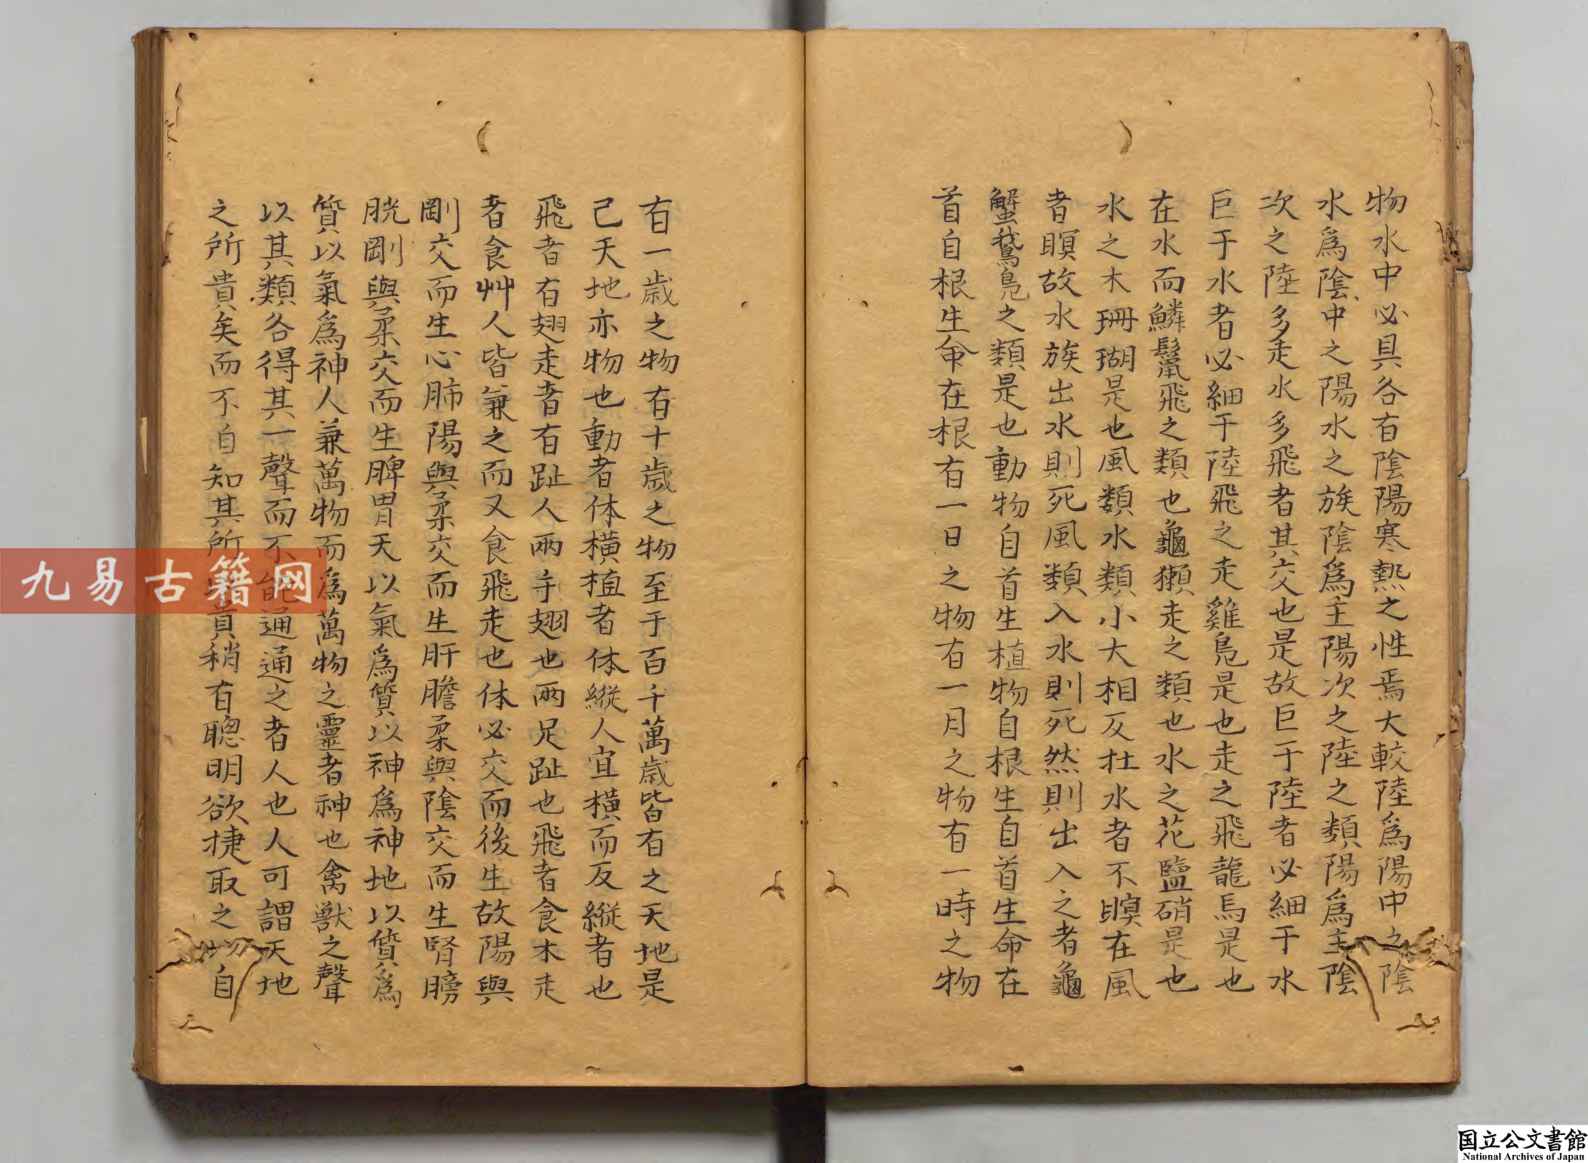 物水中必具各有陰陽寒熱之性焉大較陸爲陽中之陰
水爲陰中之陽水之族陰爲主陽次之陸之類陽爲主陰
次之陸多走水多飛者其交也是故巨于陸者必細于水
巨于水者必細于陸飛之走雞鳧是也走之飛龍馬是也
在水而鱗鬣飛之類也龜獺走之類也水之花鹽硝是也
水之木珊瑚是也風類水類小大相反在水者不瞑在風
者瞑故水族出水則死風類入水則死然則出入之者龜
蟹鵞鳧之類是也動物自首生植物自根生自首生命在
首自根生命在根有一日之物有一月之物有一時之物
有一歲之物有十歲之物至于百千萬歲皆有之天地是
己天地亦物也動者体橫植者体縱人宜橫而反縱者也
飛者有翅走者有趾人兩手翅也兩足趾也飛者食木走
者食艸人皆兼之而又食飛走也体必交而後生故陽與
剛交而生心肺陽與柔交而生肝膽柔與陰交而生腎膀
胱剛與柔交而生脾胃天以氣爲質以神爲神地以質爲
質以氣爲神人兼萬物而爲萬物之靈者神也禽獸之聲
以其類各得其一聲而不能通通之者人也人可謂天地
之所貴矣而不自知其所貴稍有聰明欲捷取之物自
九易古籍网
国立公文書館
National Archives of Japan